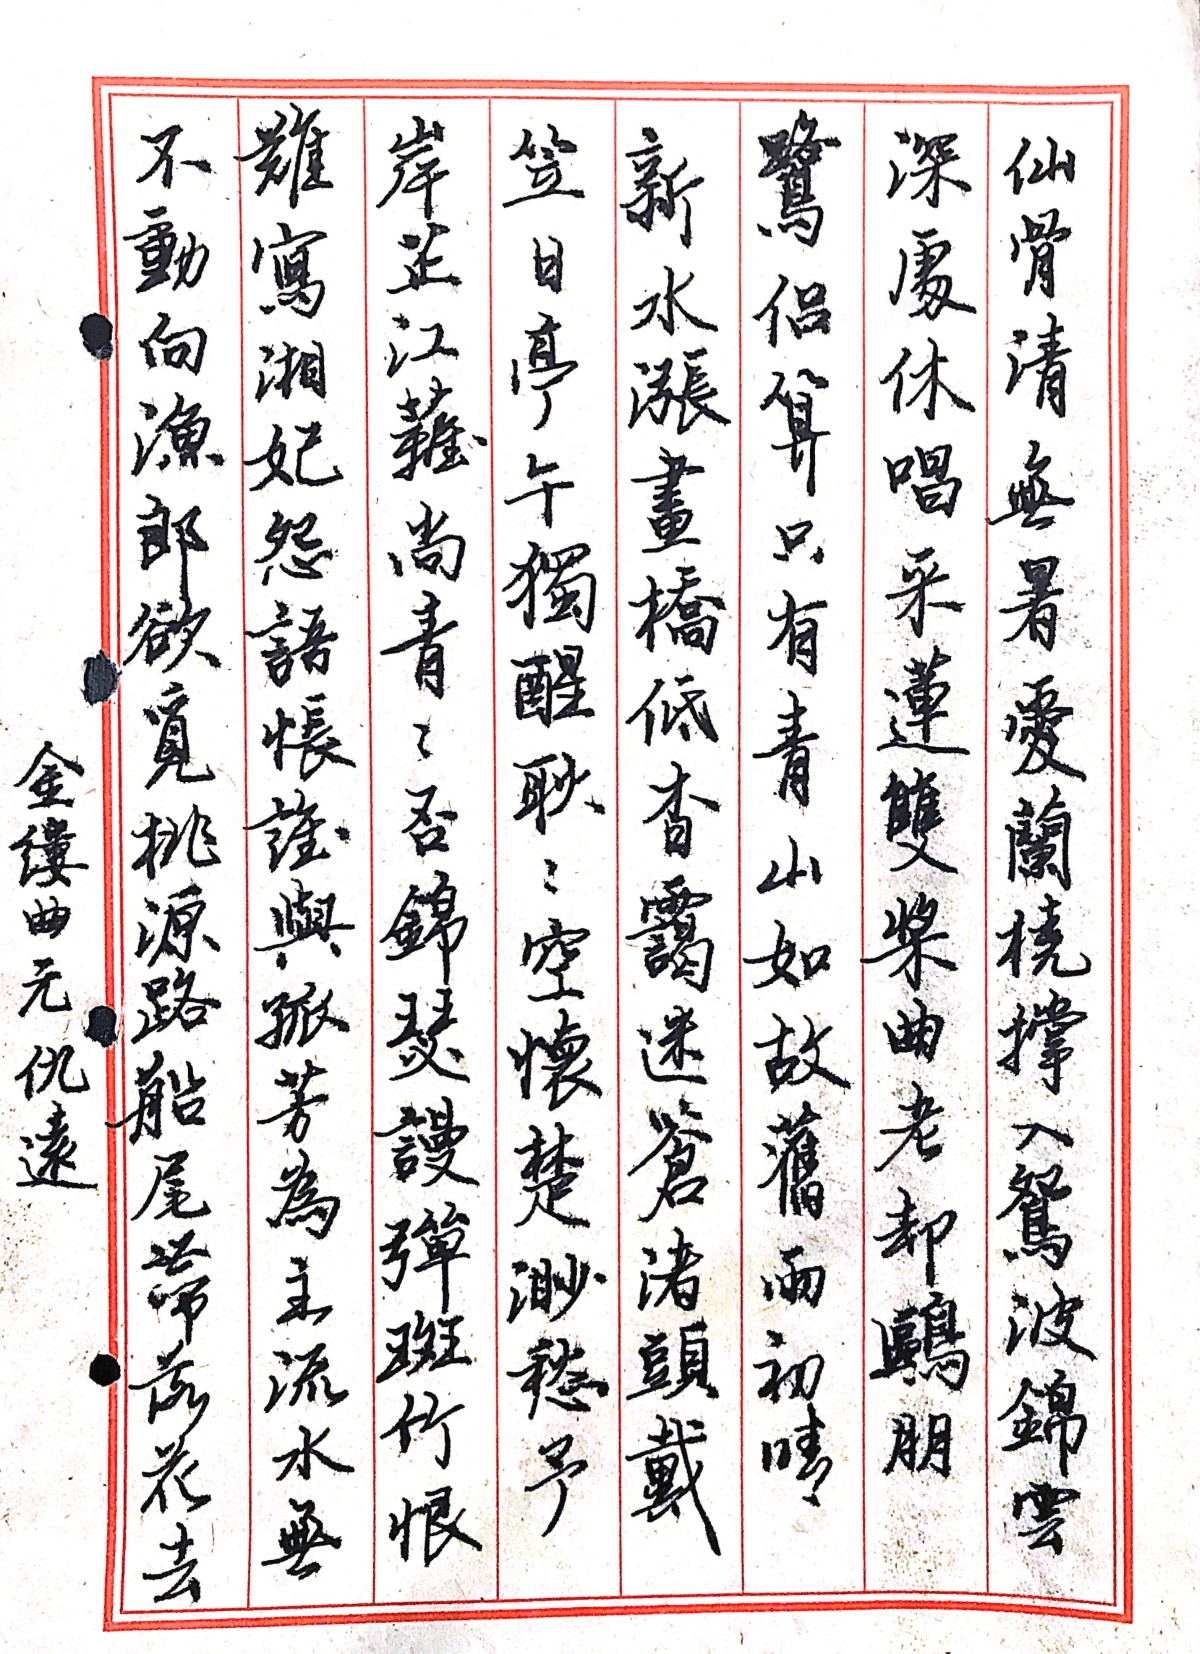 仙骨清無暑愛蘭橈撐入鴛波錦雲
深處休唱采蓮雙槳曲老却鷗朋
鷺侶算只有青山如故舊雨初晴
新水漲畫橋低杳靄迷蒼渚頭戴
笠日亭午獨醒耿〻空懷楚渺愁予
岸芷江蘺尚青〻否錦瑟謾彈斑竹恨
難寫湘妃怨語悵誰與孤芳為主流水無
不動向漁郎欲覓桃源路船尾帶落花去
金縷曲元仇遠